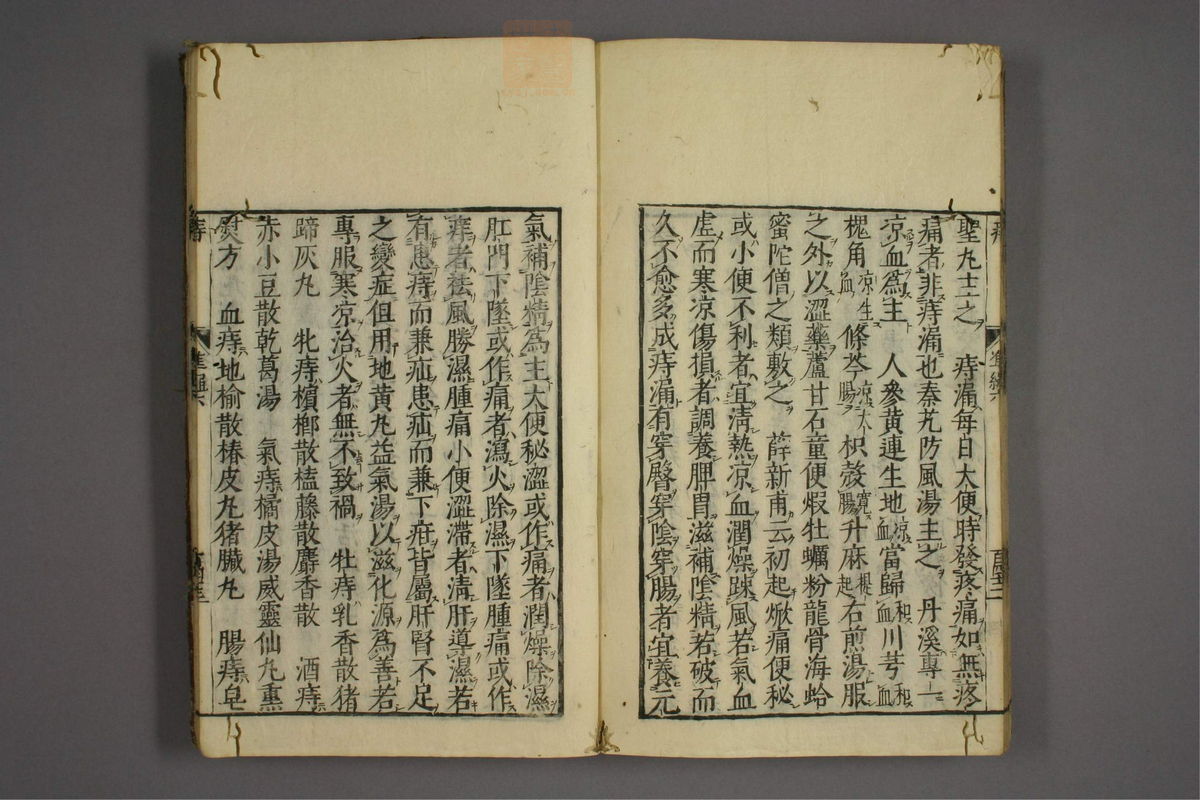 聖丸主之　痔漏每日大便時發疼痛如無疼
痛者非痔漏也秦艽防風湯主之　丹溪專一
凉血爲主　人參黃連生地凉血當歸和血川芎和血
槐角凉血生條芩凉大腸枳殼寬腸升麻提起右煎湯服
之外以澀藥蘆甘石童便煆牡蠣粉龍骨海蛤
蜜陀僧之類敷之　薛新甫云初起焮痛便秘
或小便不利者宜淸熱凉血潤燥踈風若氣血
虛而寒凉傷損者調養脾胃滋補陰精若破而
久不愈多成痔漏有穿臀穿陰穿腸者宜養元
氣補陰精爲主大便秘澀或作痛者潤燥除濕
肛門下墜或作痛者瀉火除濕下墜腫痛或作
痒者祛風勝濕腫痛小便澀滯者淸肝導濕若
有患痔而兼疝患疝而兼下疳皆屬肝腎不足
之變症但用地黃丸益氣湯以滋化源爲善若
專服寒凉治火者無不致禍　牡痔乳香散猪
蹄灰丸　牝痔檳榔散榼藤散麝香散　酒痔
赤小豆散乾葛湯　氣痔橘皮湯威靈仙丸熏
熨方　血痔地楡散椿皮丸猪臟丸　腸痔皂